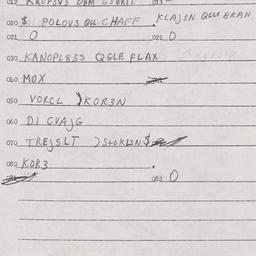 020 $ POLOVS QLL CHAFF. KLAJ3N QGLE BRAH
021 O 022 O
030 KANOPL835 QGLE FLAX
040 MOX
050 VORCL ) KOR3N
060 DI CVAJG
070 TREJSLT ) STOKL3N $
080 KOR3
082 O